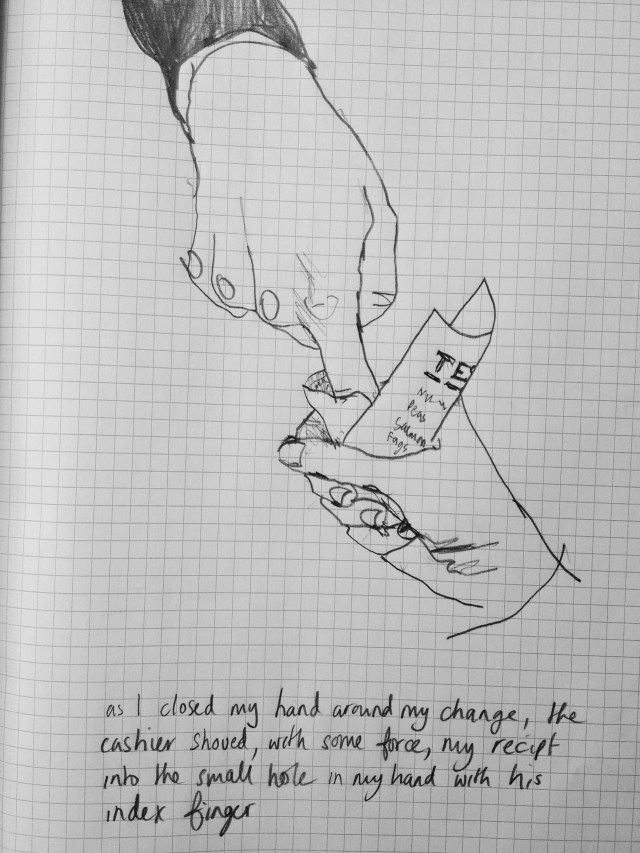 TE
Peas
Salmon
Fags
as I closed my hand around my change, the
cashier shoved, with some force, my recipt
into the small hole in my hand with his
index finger